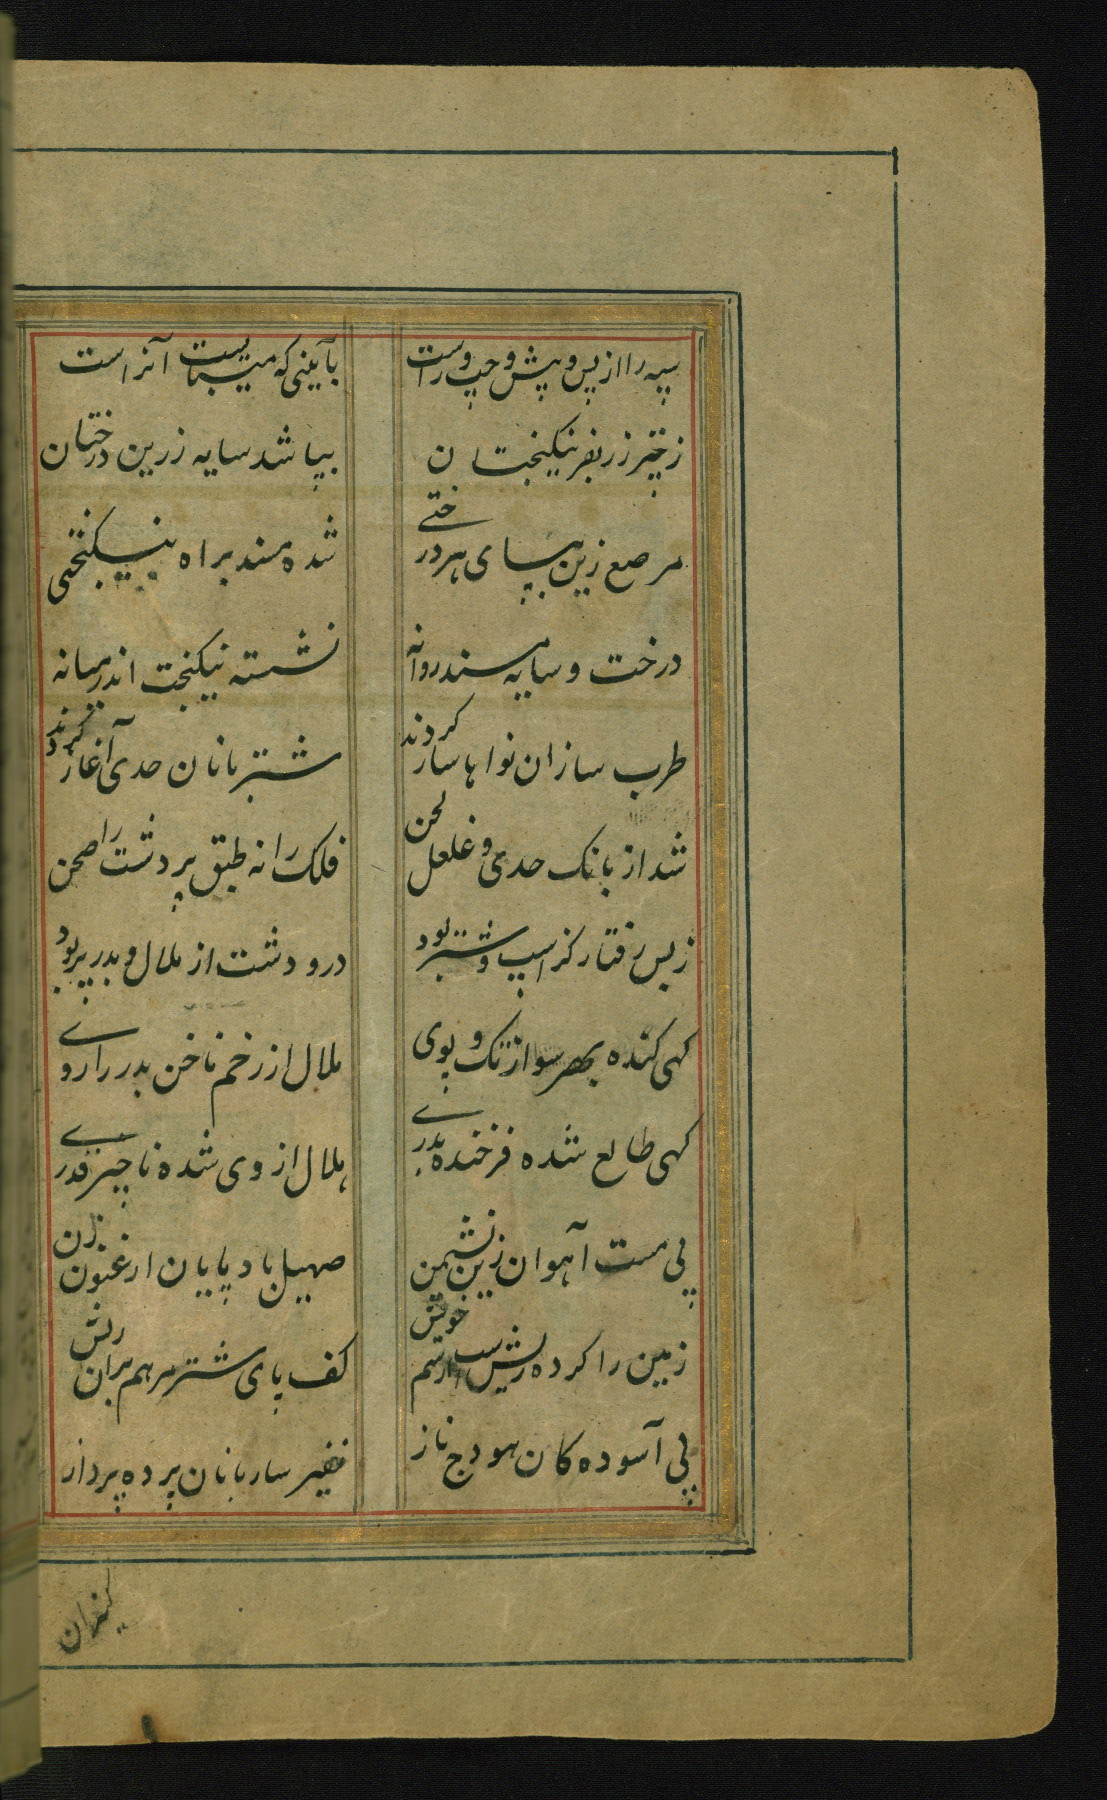 سپه را از پس و پیش و چپ و راست بآیینی که میبایست آنراست
ز چتر زر بفر نیکبختان بپا شد سایه زرین درختان
مرصع زین بپای هر درختی شده مسند براه نیکبختی
درخت و سایه مسند روانه نشسته نیکبخت اندر میانه
طرب سازان نواها ساز کردند شتربانان حدی آغاز کردند
شد از بانک حدی و غلغل لحن فلک را نه طبق پر دشت را صحن
ز بس رفتار کز اسپ و شتر بود در و دشت از هلال و بدر پر بود
کهی کنده بهر سو از تک و پوی هلال از زخم ناخن بدر را روے
کهی طالع شده فرخنده بدرے هلال از وی شده ناچیز قدرے
پی مست آهوان زین نشیمن صهیل باد پایان ارغنون زن
زمین را کرده ریش اسپ از سم خویش کف پای شتر مرهم بران ریش
پی آسوده کان هودج ناز نفیر ساربانان پرده پرداز
کنیزان